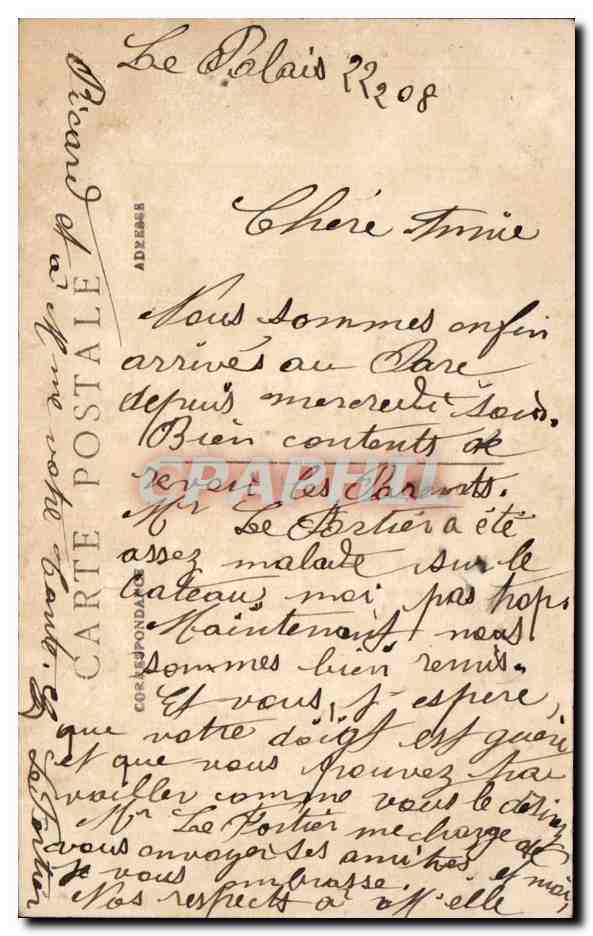 Le Palais 22 2 08
Chère Amie
Nous sommes enfin
arrivés au Parc
depuis mercredi soir.
Bien contents de
revoir les Parents.
Mr Le Portier a été
assez malade sur le
bateau moi pas trop.
Maintenant nous
sommes bien remis.
Et vous, j'espère,
que votre doigt est guéri
et que vous pouvez tra
vailler comme vous le désirez
Mr Le Portier me charge de
vous envoyer ses amitiés et moi,
je vous embrasse.
Nos respects à M'elle
Picard et à Mme votre tante.
Le Portier
CARTE POSTALE
CORRESPONDANCE
ADRESSE
CPAPHIL